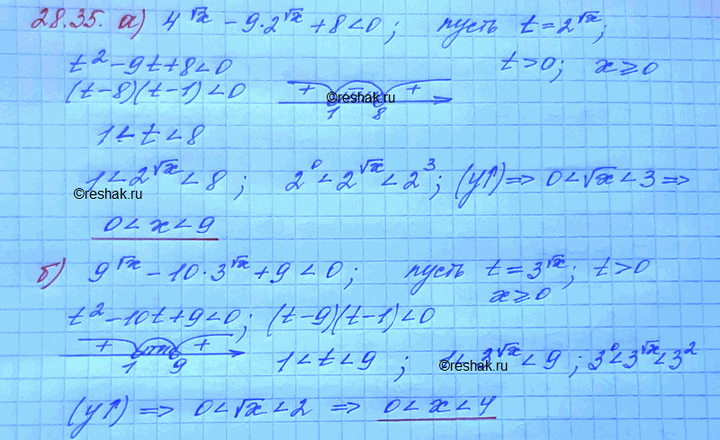 28.35. а) 4^√x − 9·2^√x + 8 < 0; пусть t = 2^√x;
t² − 9t + 8 < 0 t > 0; x ⩾ 0
(t − 8)(t − 1) < 0 + − + 1 8
©reshak.ru
1 < t < 8
1 < 2^√x < 8; 2⁰ < 2^√x < 2³; (y↑) => 0 < √x < 3 =>
©reshak.ru
0 < x < 9
б) 9^√x − 10·3^√x + 9 < 0; пусть t = 3^√x; t > 0
x ⩾ 0
t² − 10t + 9 < 0; (t − 9)(t − 1) < 0
+ + 1 9
1 < t < 9; 1 < 3^√x < 9; 3⁰ < 3^√x < 3²
©reshak.ru
(y↑) => 0 < √x < 2 => 0 < x < 4